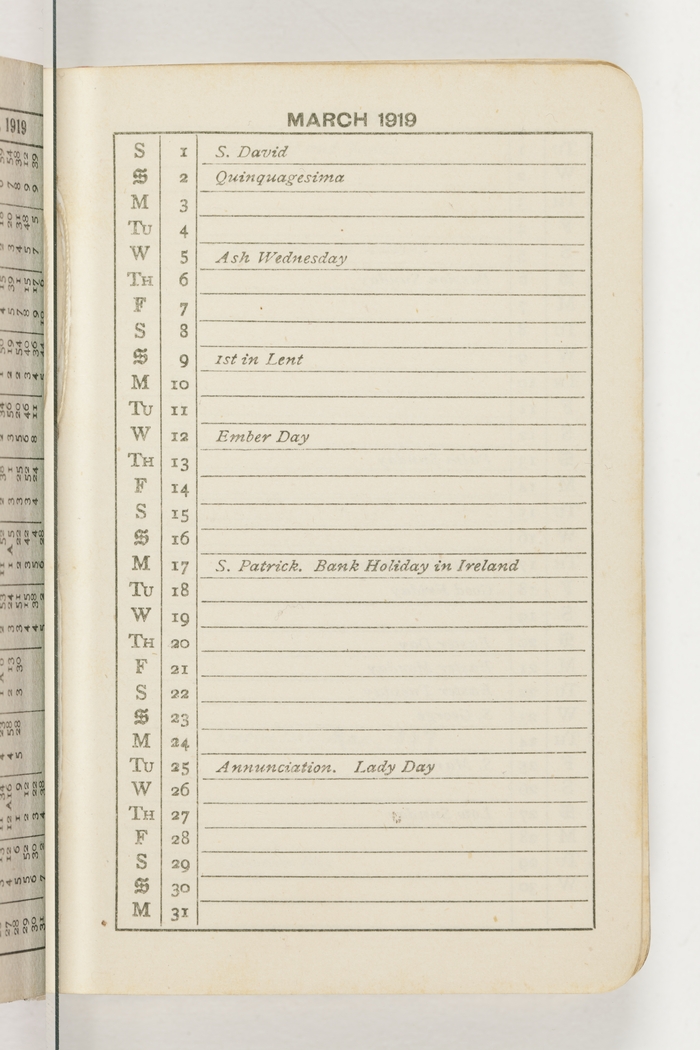 1919
MARCH 1919
S 1 S. David
S 2 Quinquagesima
M 3
Tu 4
W 5 Ash Wednesday
Th 6
F 7
S 8
S 9 1st in Lent
M 10
Tu 11
W 12 Ember Day
Th 13
F 14
S 15
S 16
M 17 S. Patrick. Bank Holiday in Ireland
Tu 18
W 19
Th 20
F 21
S 22
S 23
M 24
Tu 25 Annunciation. Lady Day
W 26
Th 27
F 28
S 29
S 30
M 31